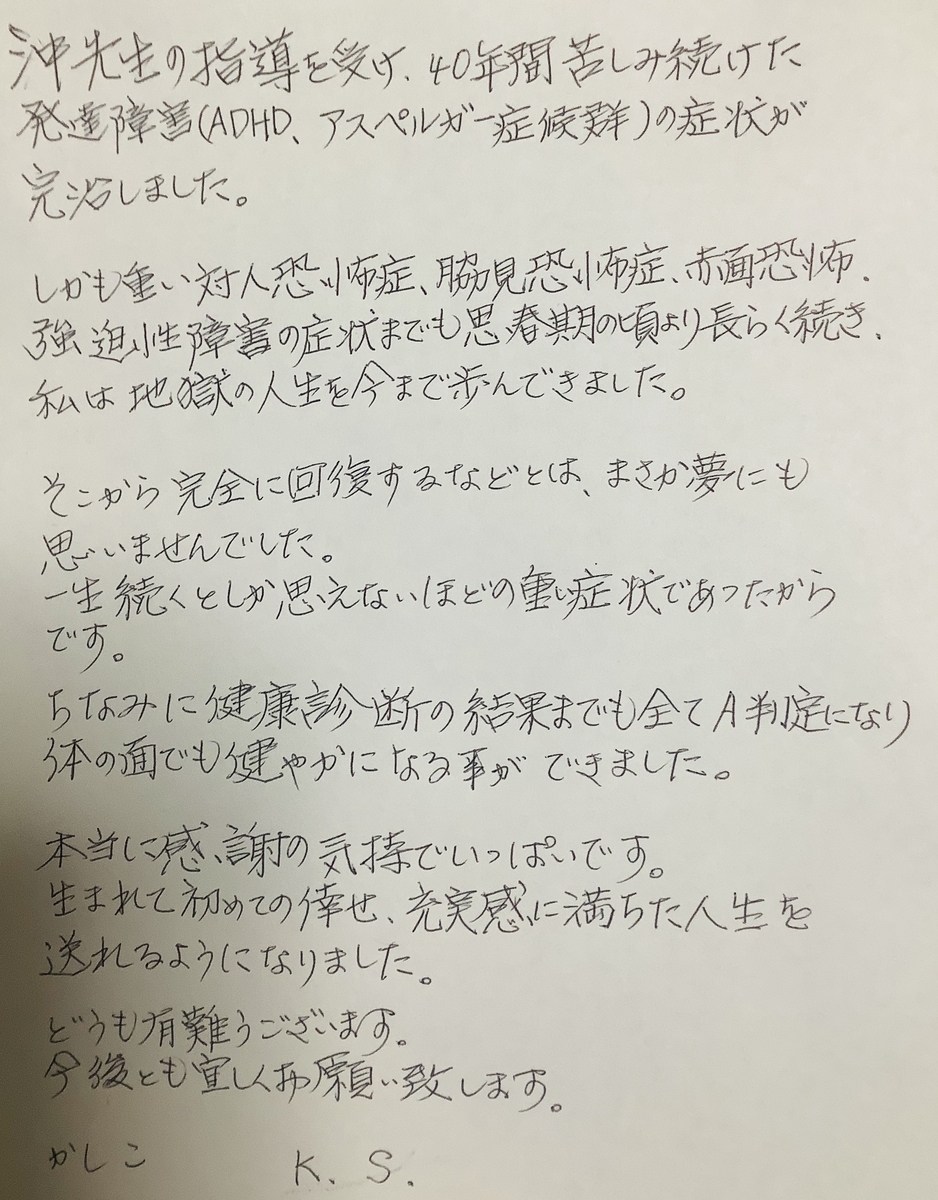 沖先生の指導を受け、40年間苦しみ続けた
発達障害(ADHD、アスペルガー症候群)の症状が
完治しました。
しかも重い対人恐怖症、脇見恐怖症、赤面恐怖、
強迫性障害の症状までも思春期の頃より長らく続き、
私は地獄の人生を今まで歩んできました。
そこから完全に回復するなどとは、まさか夢にも
思いませんでした。
一生続くとしか思えないほどの重い症状であったから
です。
ちなみに健康診断の結果までも全てA判定になり
体の面でも健やかになる事ができました。
本当に感謝の気持でいっぱいです。
生まれて初めての倖せ、充実感に満ちた人生を
送れるようになりました。
どうも有難うございます。
今後とも宜しくお願い致します。
かしこ K. S.